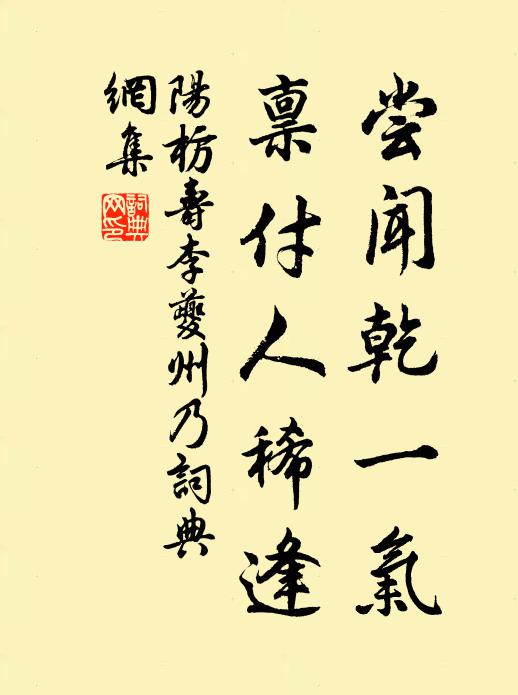 嘗聞乾一氣
稟付人稀逢
陽枋壽李夔州乃詞典
網集
詞典
网印